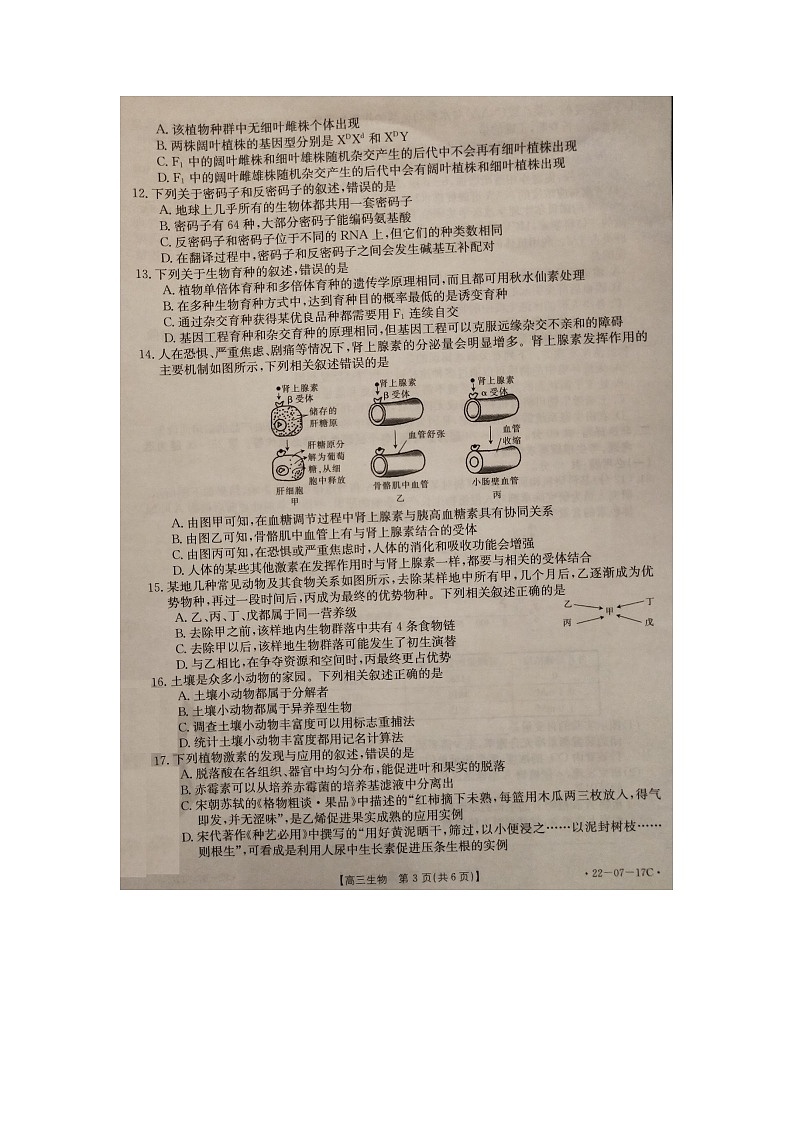 A. 该植物种群中无细叶雌株个体出现
B. 两株阔叶植株的基因型分别是 XᴰXᵈ 和 XᴰY
C. F₁ 中的阔叶雌株和细叶雄株随机杂交产生的后代中不会再有细叶植株出现
D. F₁ 中的阔叶雌雄株随机杂交产生的后代中会有阔叶植株和细叶植株出现
12. 下列关于密码子和反密码子的叙述,错误的是
A. 地球上几乎所有的生物体都共用一套密码子
B. 密码子有 64 种,大部分密码子能编码氨基酸
C. 反密码子和密码子位于不同的 RNA 上,但它们的种类数相同
D. 在翻译过程中,密码子和反密码子之间会发生碱基互补配对
13. 下列关于生物育种的叙述,错误的是
A. 植物单倍体育种和多倍体育种的遗传学原理相同,而且都可用秋水仙素处理
B. 在多种生物育种方式中,达到育种目的概率最低的是诱变育种
C. 通过杂交育种获得某优良品种都需要用 F₁ 连续自交
D. 基因工程育种和杂交育种的原理相同,但基因工程可以克服远缘杂交不亲和的障碍
14. 人在恐惧、严重焦虑、剧痛等情况下,肾上腺素的分泌量会明显增多。肾上腺素发挥作用的
主要机制如图所示,下列相关叙述错误的是
肾上腺素
β 受体
储存的
肝糖原
肝糖原分
解为葡萄
糖,从细
胞中释放
肝细胞
甲
肾上腺素
β 受体
血管舒张
骨骼肌中血管
乙
肾上腺素
α 受体
血管
收缩
小肠壁血管
丙
A. 由图甲可知,在血糖调节过程中肾上腺素与胰高血糖素具有协同关系
B. 由图乙可知,骨骼肌中血管上有与肾上腺素结合的受体
C. 由图丙可知,在恐惧或严重焦虑时,人体的消化和吸收功能会增强
D. 人体的某些其他激素在发挥作用时与肾上腺素一样,都要与相关的受体结合
15. 某地几种常见动物及其食物关系如图所示,去除某样地中所有甲,几个月后,乙逐渐成为优
势物种,再过一段时间后,丙成为最终的优势物种。下列相关叙述正确的是
A. 乙、丙、丁、戊都属于同一营养级
B. 去除甲之前,该样地内生物群落中共有 4 条食物链
C. 去除甲以后,该样地生物群落可能发生了初生演替
D. 与乙相比,在争夺资源和空间时,丙最终更占优势
乙
丁
甲
丙
戊
16. 土壤是众多小动物的家园。下列相关叙述正确的是
A. 土壤小动物都属于分解者
B. 土壤小动物都属于异养型生物
C. 调查土壤小动物丰富度可以用标志重捕法
D. 统计土壤小动物丰富度都用记名计算法
17. 下列植物激素的发现与应用的叙述,错误的是
A. 脱落酸在各组织、器官中均匀分布,能促进叶和果实的脱落
B. 赤霉素可以从培养赤霉菌的培养基滤液中分离出
C. 宋朝苏轼的《格物粗谈·果品》中描述的“红柿摘下未熟,每篮用木瓜两三枚放入,得气
即发,并无涩味”,是乙烯促进果实成熟的应用实例
D. 宋代著作《种艺必用》中撰写的“用好黄泥晒干,筛过,以小便浸之……以泥封树枝……
则根生”,可看成是利用人尿中生长素促进压条生根的实例
【高三生物 第 3 页(共 6 页)】
·22-07-17C·